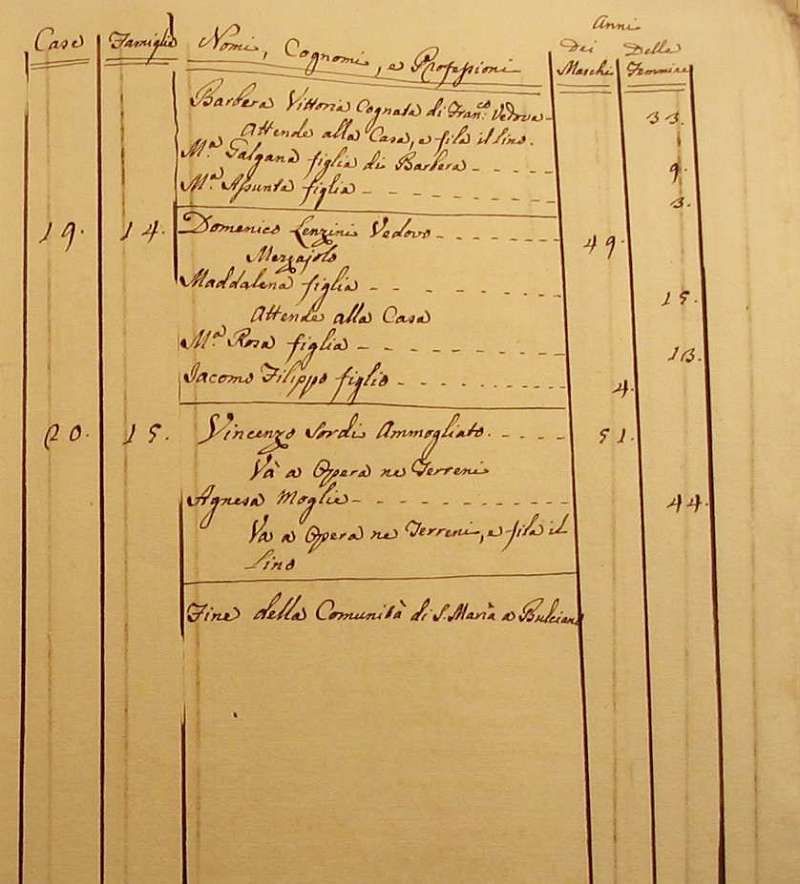 Anni
Case Famiglie Nomi, Cognomi, e Professioni Dei Maschi Delle Femmine
Barbera Vittoria Cognata di Fran.co Vedova - 33.
Attende alla Casa, e fila il lino.
M.a Galgana figlia di Barbera - - - - - 9.
M.a Assunta figlia - - - - - - - - - - 3.
19. 14. Domenico Lenzini Vedovo - - - - - - - - 49.
Mezzajolo
Maddalena figlia - - - - - - - - - - 15.
Attende alla Casa
M.a Rosa figlia - - - - - - - - - - 13.
Jacomo Filippo figlio - - - - - - - - - 4.
20. 15. Vincenzo Sordi Ammogliato. - - - - 51.
Và a Opera ne Terreni
Agnesa Moglie - - - - - - - - - - 44.
Va a Opera ne Terreni, e fila il
Lino
Fine della Comunità di S. Maria a Bulciano